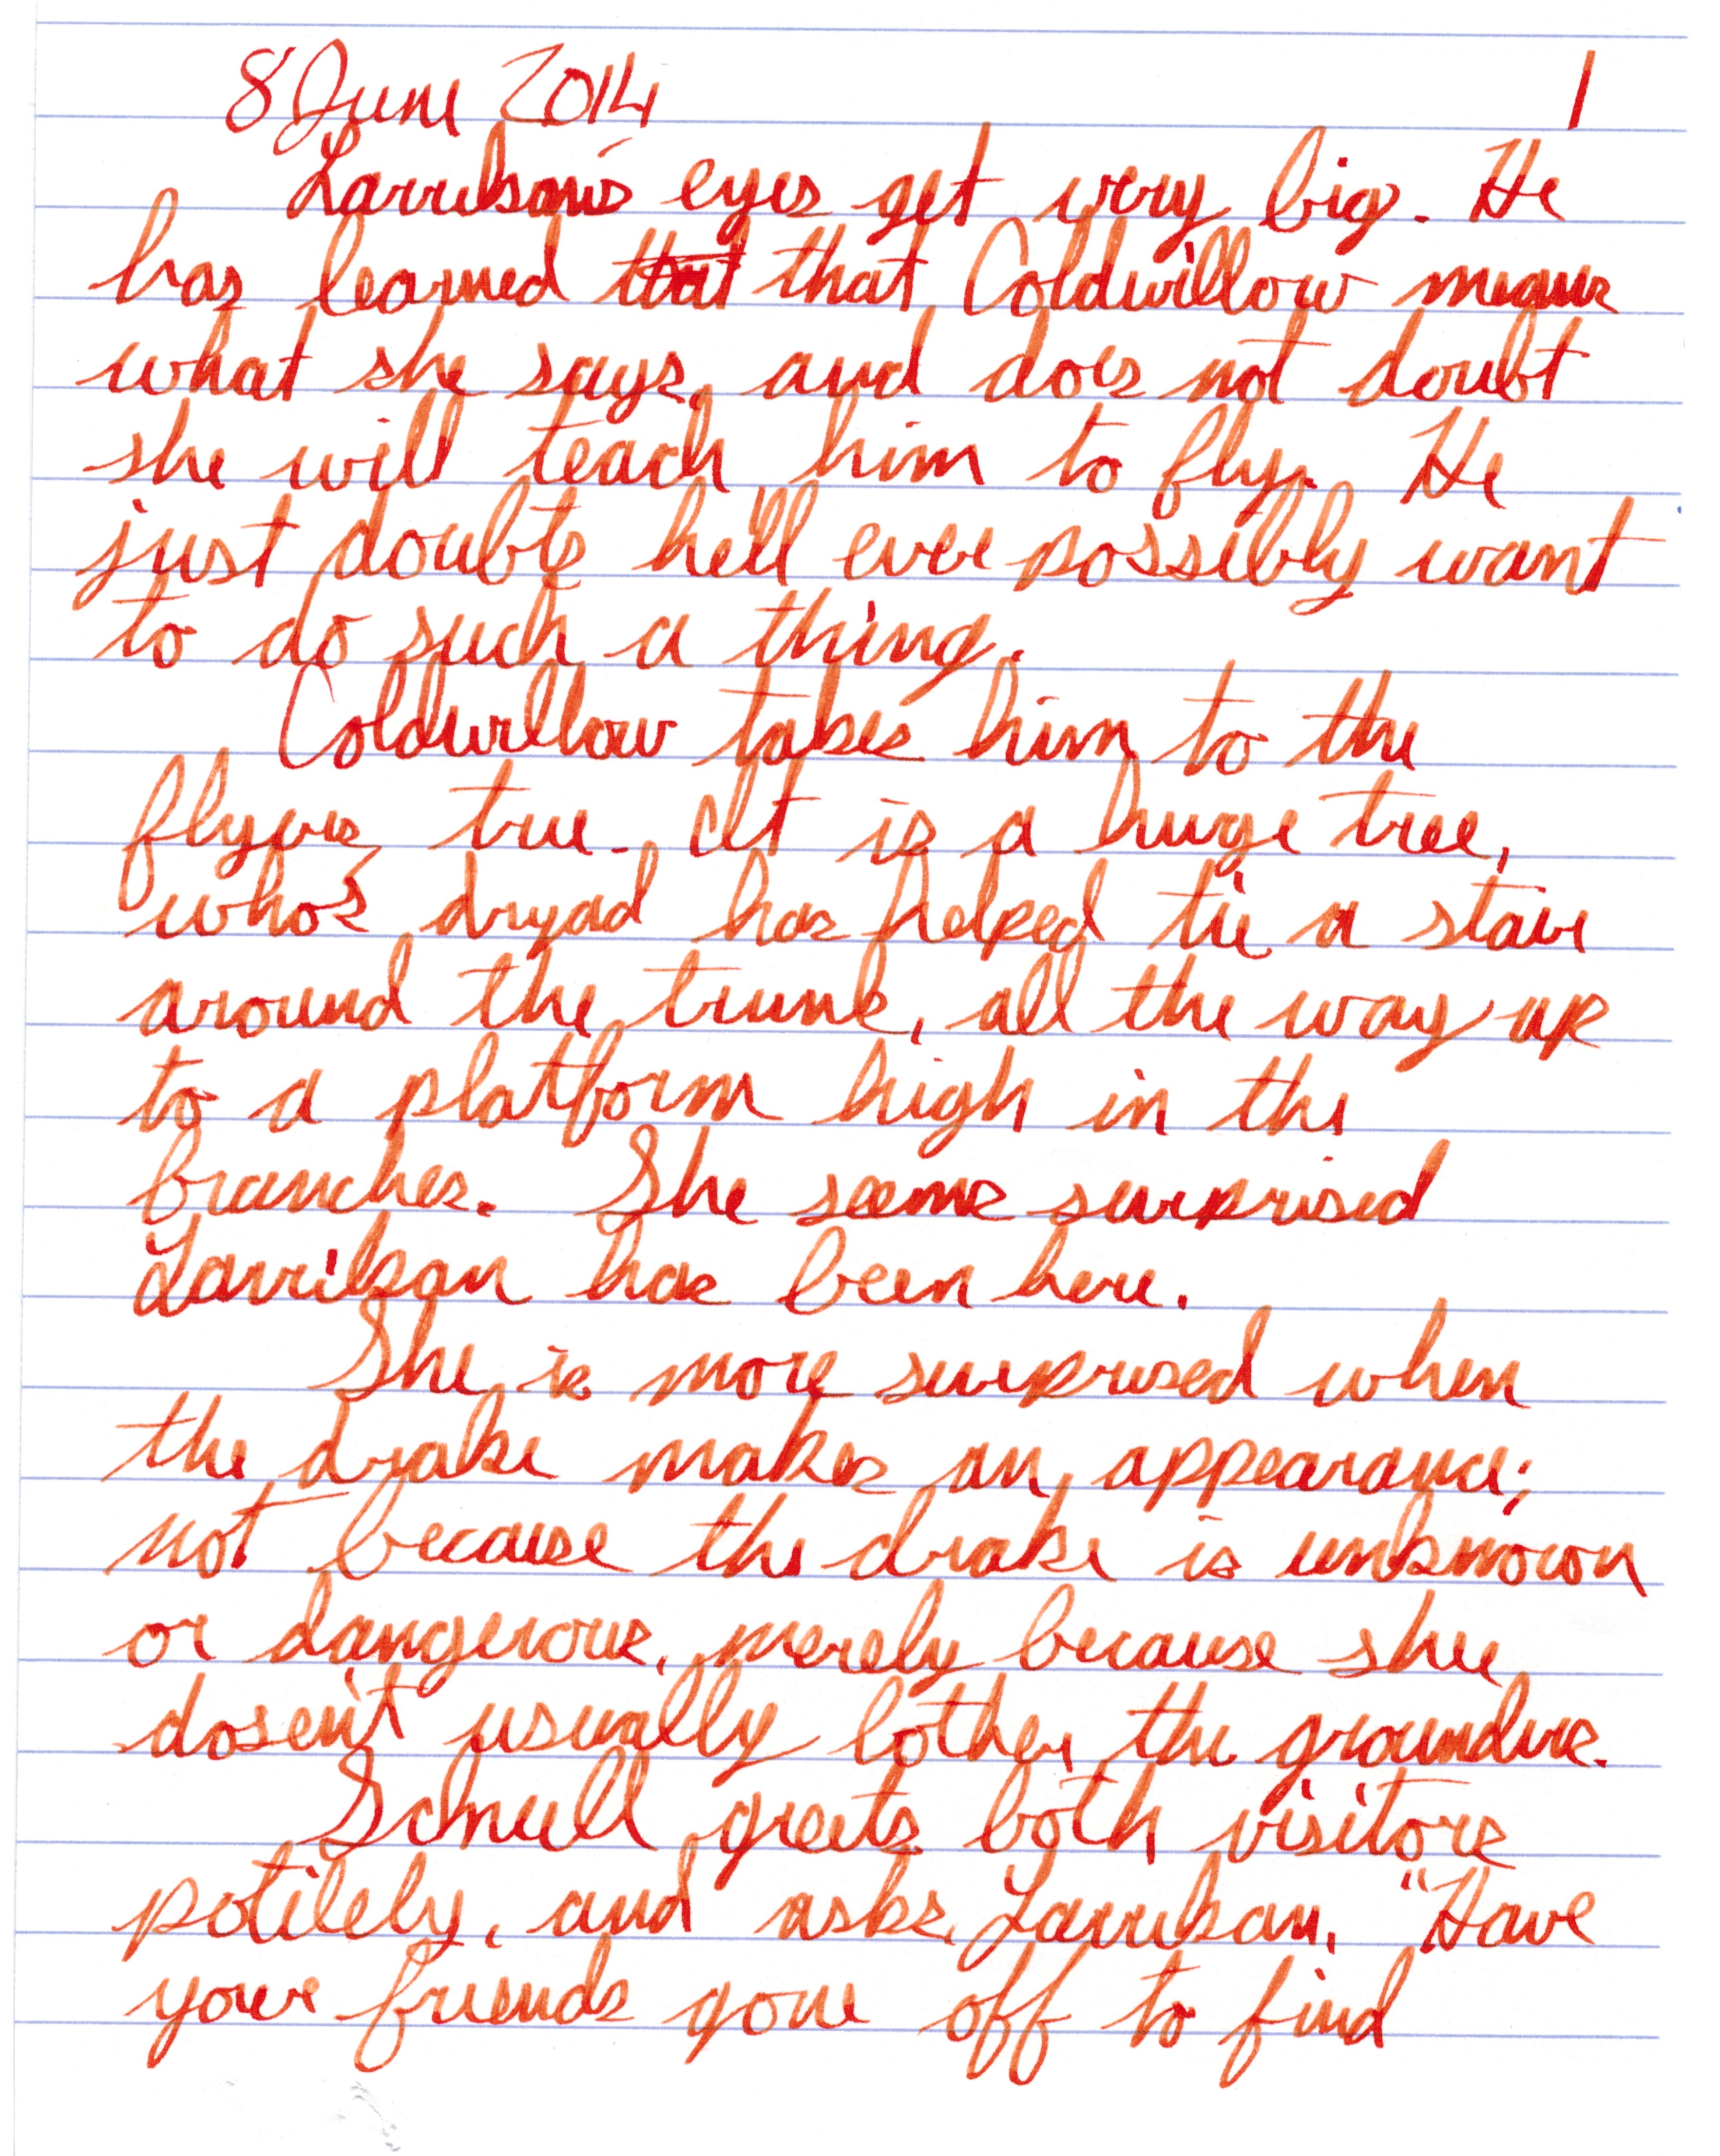 8 June 2014 1
Larrikan's eyes get very big. He
has learned that that Coldwillow means
what she says, and does not doubt
she will teach him to fly. He
just doubts he'll ever possibly want
to do such a thing.
Coldwillow takes him to the
flyers tree. It is a huge tree,
who's dryad has helped tie a stair
around the trunk, all the way up
to a platform high in the
branches. She seems surprised
Larrikan has been here.
She is more surprised when
the drake makes an appearance;
not because the drake is unknown
or dangerous, merely because shee
dosen't usually bother the groundlies.
Schnell greets both visitors
potilely, and asks Larrikan, "Have
your friends gone off to find